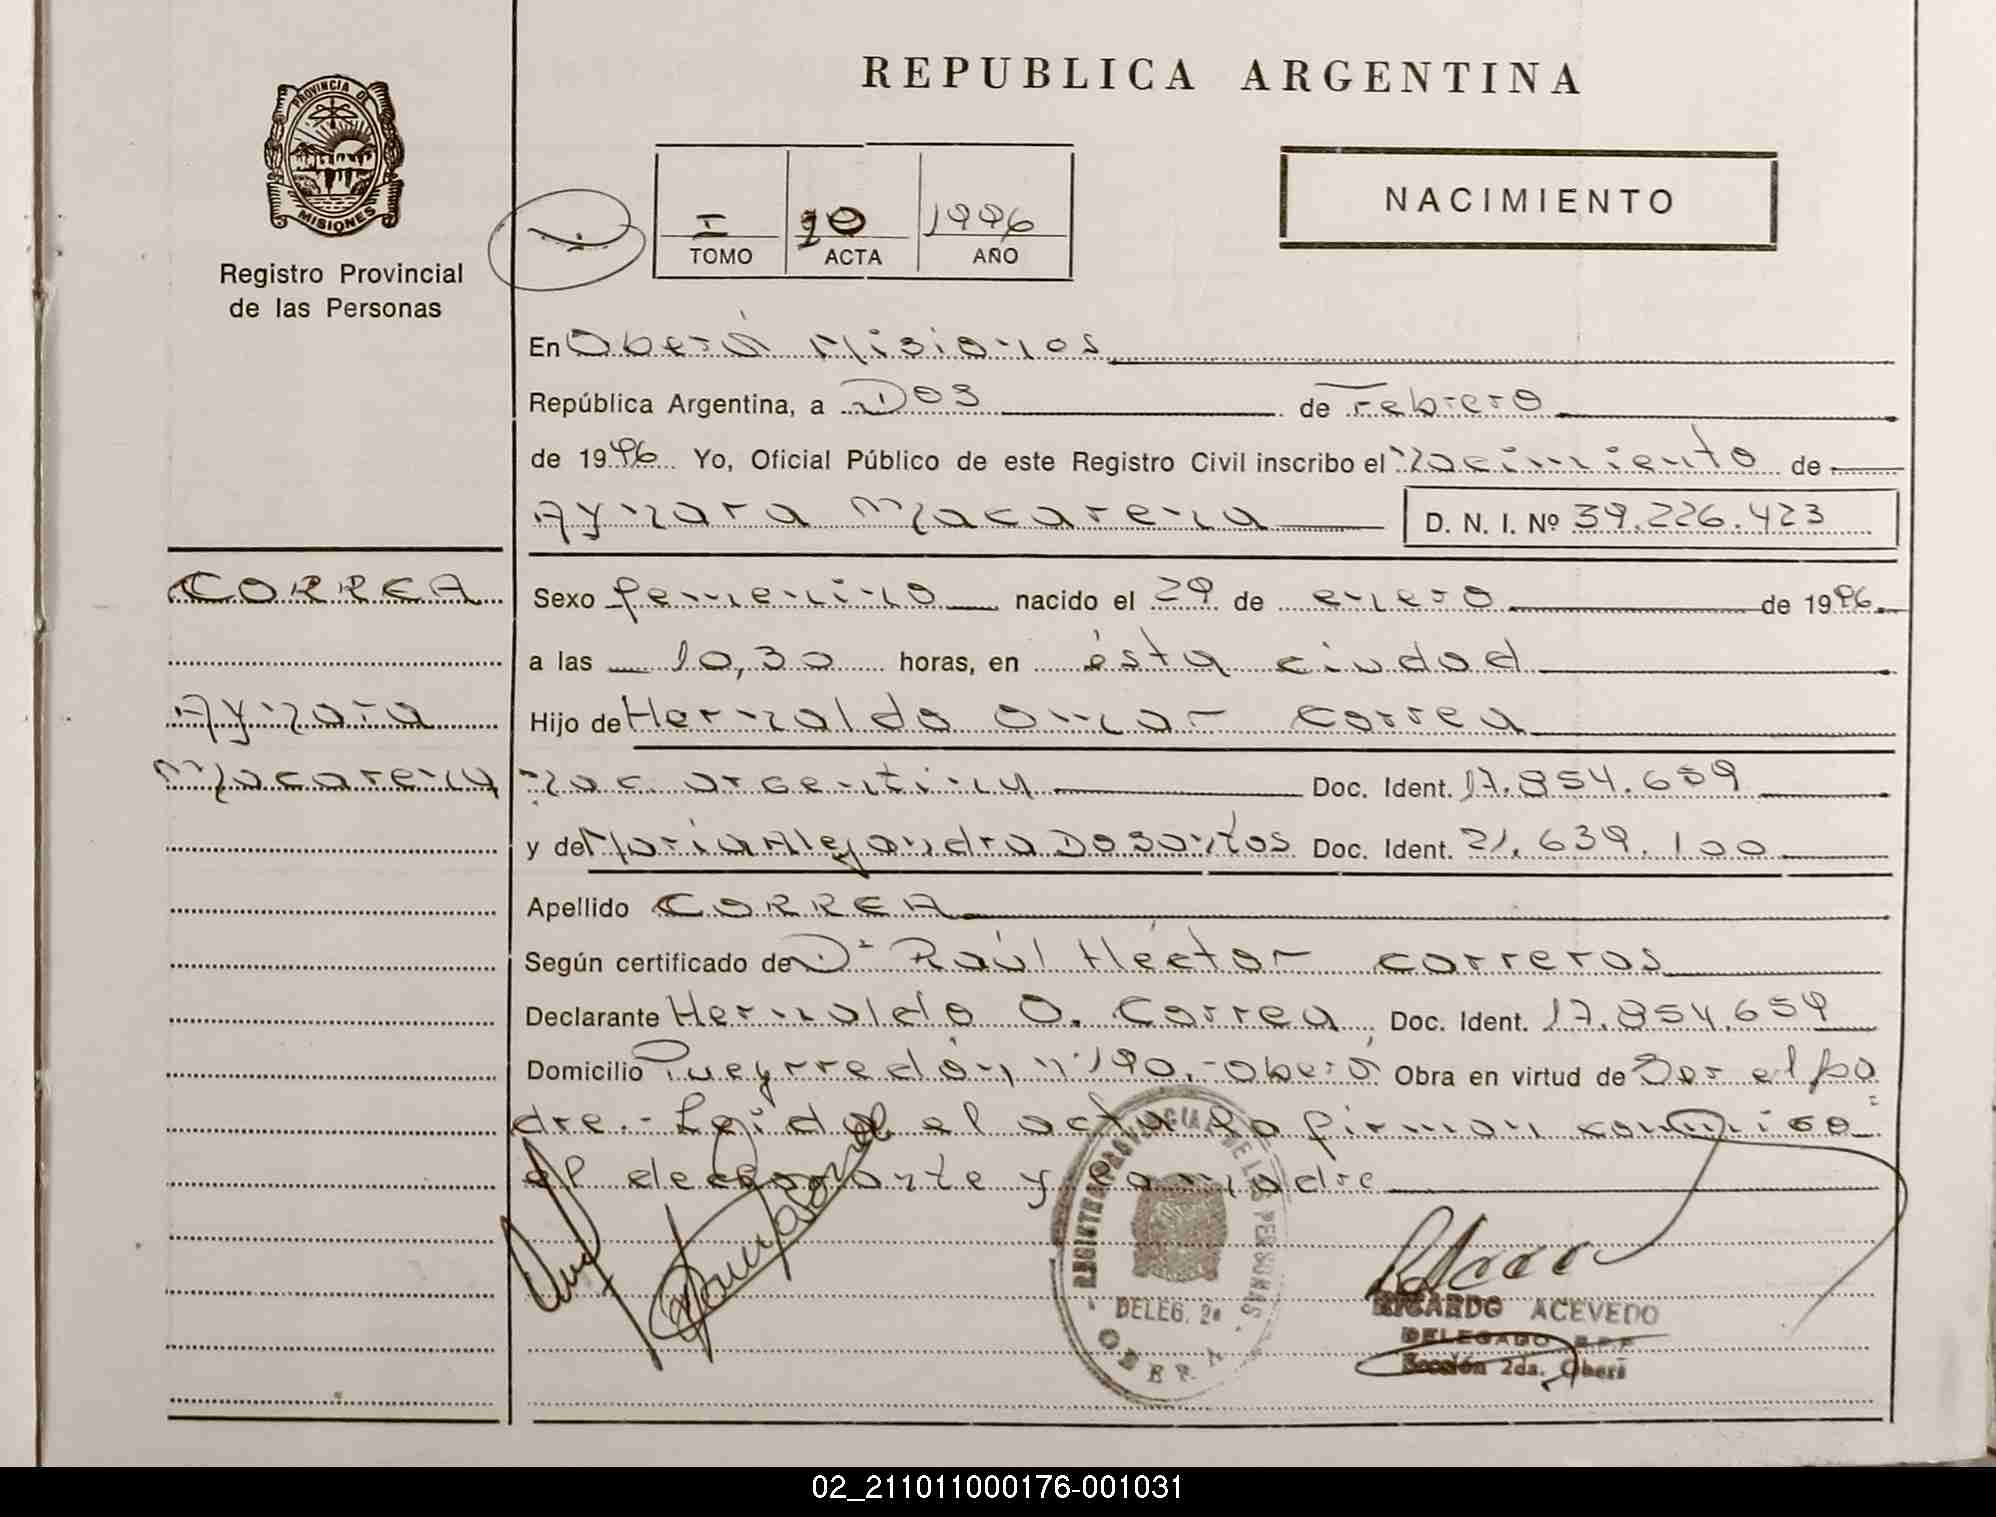 REPUBLICA ARGENTINA
PROVINCIA DE
MISIONES
Registro Provincial
de las Personas
I 1996
TOMO ACTA AÑO
NACIMIENTO
En Oberá Misiones
República Argentina, a Dos de Febrero
de 1996 Yo, Oficial Público de este Registro Civil inscribo el Nacimiento de
Aymara Macarena D. N. I. Nº 39.226.423
CORREA
Aymara
Macarena
Sexo femenino nacido el 29 de enero de 1996
a las 10,30 horas, en ésta ciudad
Hijo de Hernaldo Omar Correa
nac. argentina Doc. Ident. 17.854.659
y de Maria Alejandra Dosantos Doc. Ident. 21.639.100
Apellido CORREA
Según certificado de Dr Raúl Héctor Correros
Declarante Hernaldo O. Correa Doc. Ident. 17.854.659
Domicilio Pueyrredón nº 190.- Oberá Obra en virtud de Ser el pa
dre.- Leída el acta la firman conmigo
el declarante y la madre
REGISTRO PROVINCIAL DE LAS PERSONAS
DELEG. 2a
OBERA
RICARDO ACEVEDO
DELEGADO R.P.P.
Sección 2da. Oberá
02_211011000176-001031